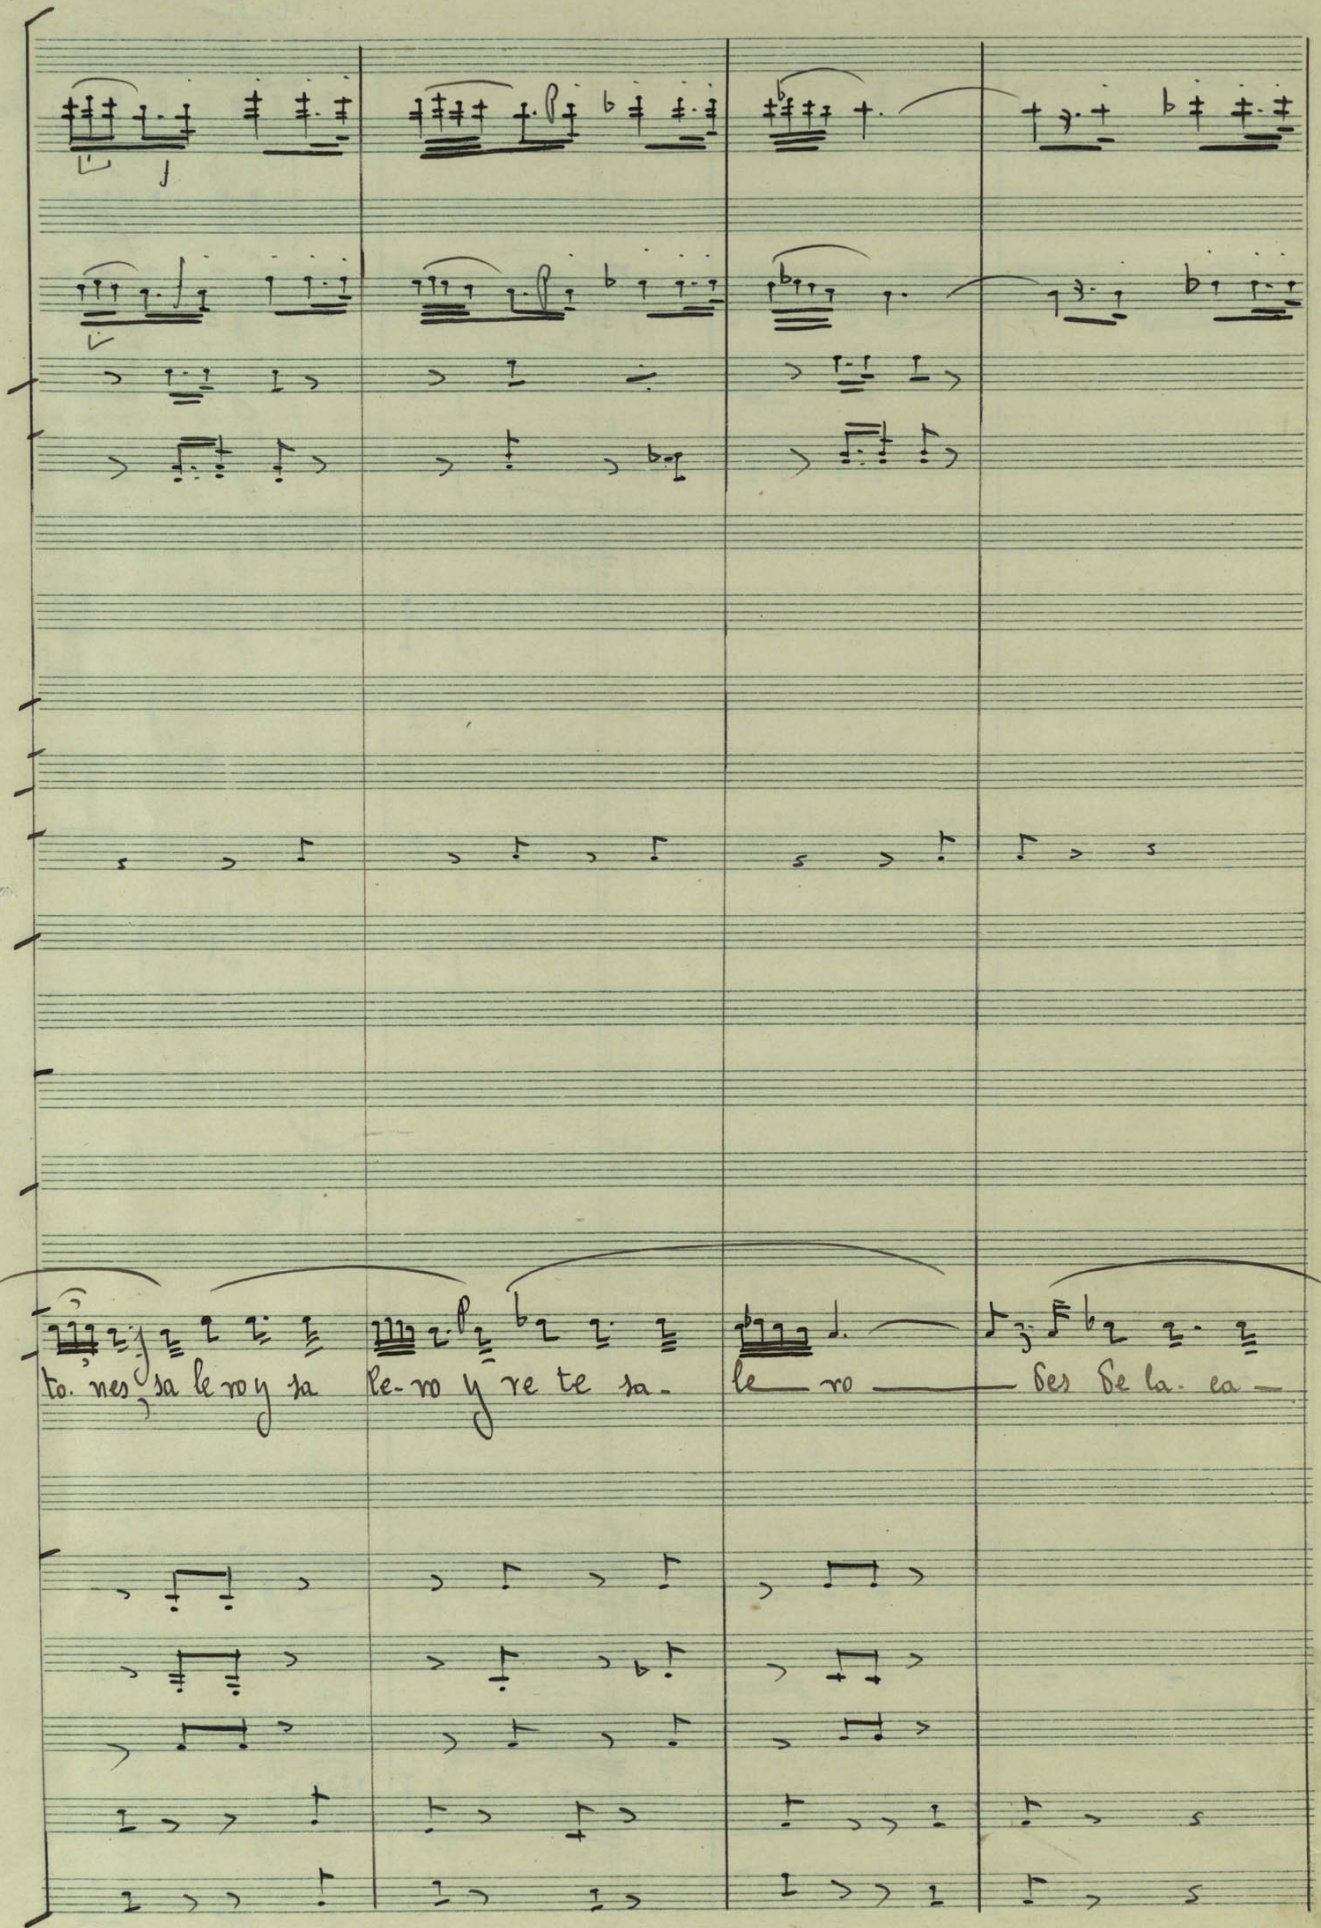 to. nes, sa le ro y sa le- ro y re te sa- le ro des de la. ca-